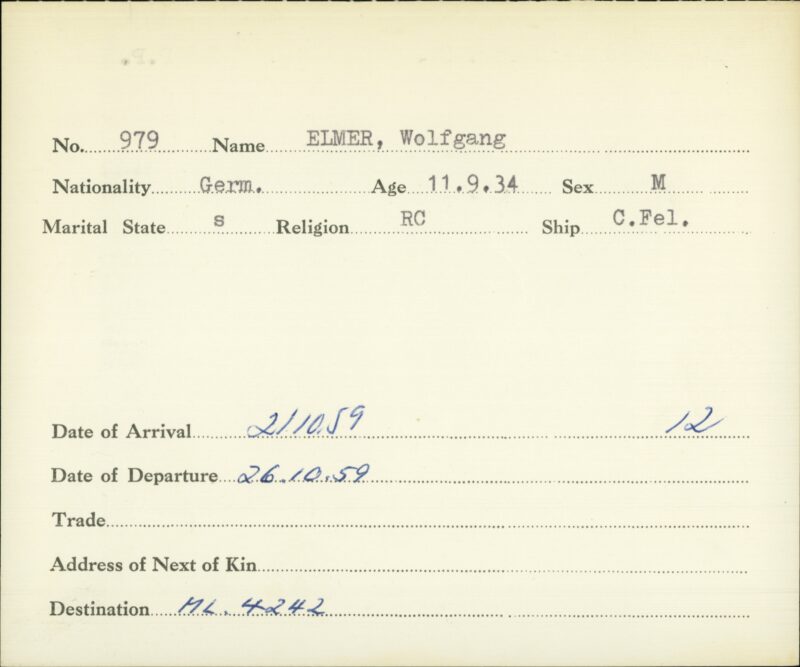 No. 979 Name ELMER, Wolfgang
Nationality Germ. Age 11.9.34 Sex M
Marital State s Religion RC Ship C.Fel.
Date of Arrival 2110.59 12
Date of Departure 26.10.59
Trade
Address of Next of Kin
Destination ML. 4242